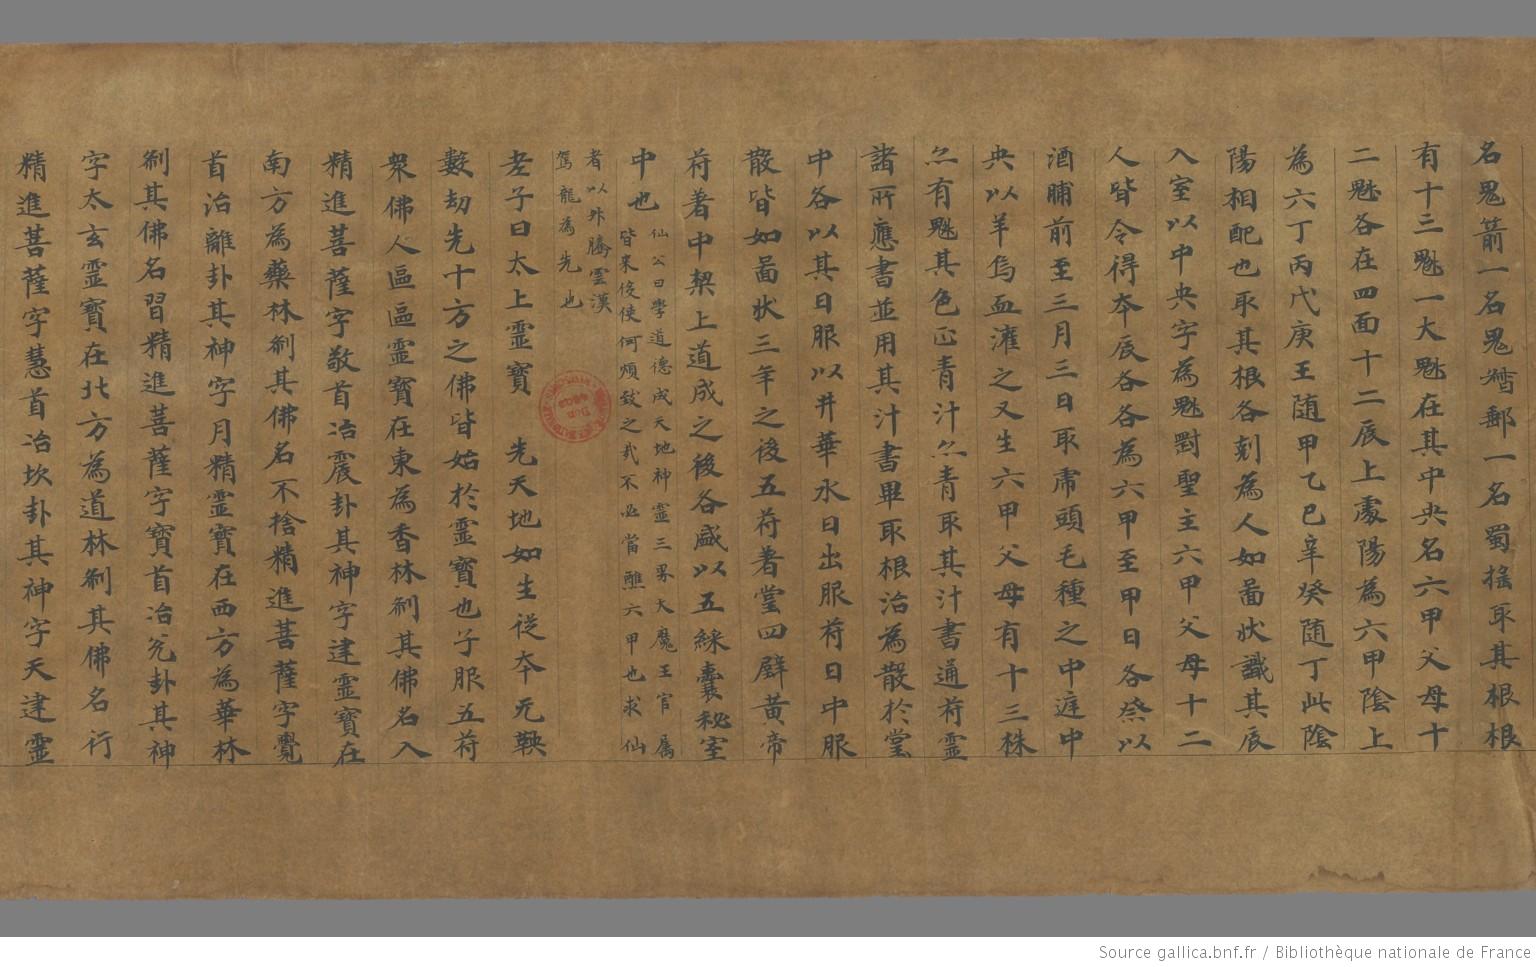 名鬼箭一名鬼督郵一名蜀搖取其根根
有十三魁一大魁在其中央名六甲父母十
二魁各在四面十二辰上處陽為六甲陰上
為六丁丙戊庚壬隨甲乙巳辛癸随丁此陰
陽相配也取其根各刻為人如啚狀識其辰
入室以中央字為魁對聖主六甲父母十二
人皆令得夲辰各各為六甲至甲日各祭以
酒脯前至三月三日取帚頭毛種之中庭中
央以羊血灌之又生六甲父母有十三株
亦有魁其色正青汁亦青取其汁書通苻靈
諸所應書並用其汁書畢取根治為散於堂
中各以其日服以井華水日出服苻日中服
散皆如啚狀三年之後五苻著堂四壁黃帝
苻著中梁上道成之後各盛以五綵囊秘室
中也 仙公曰學道德成天地神靈三界大魔王官属
皆來伇使何煩致之我不必當醮六甲也求仙
者以外騰雲漢
駕龍為先也
老子曰太上靈寶 先天地如生從夲无鞅
數劫先十方之佛皆始於靈寶也子服五苻
衆佛人區區靈寶在東為香林剎其佛名入
精進菩薩字敬首冶震卦其神字建靈寶在
南方為藥林剎其佛名不捨精進菩薩字覺
首治離卦其神字月精靈寶在西方為華林
剎其佛名習精進菩薩字寶首冶兊卦其神
字太玄靈寶在北方為道林剎其佛名行
精進菩薩字慧首冶坎卦其神字天建靈
Source gallica.bnf.fr / Bibliothèque nationale de France